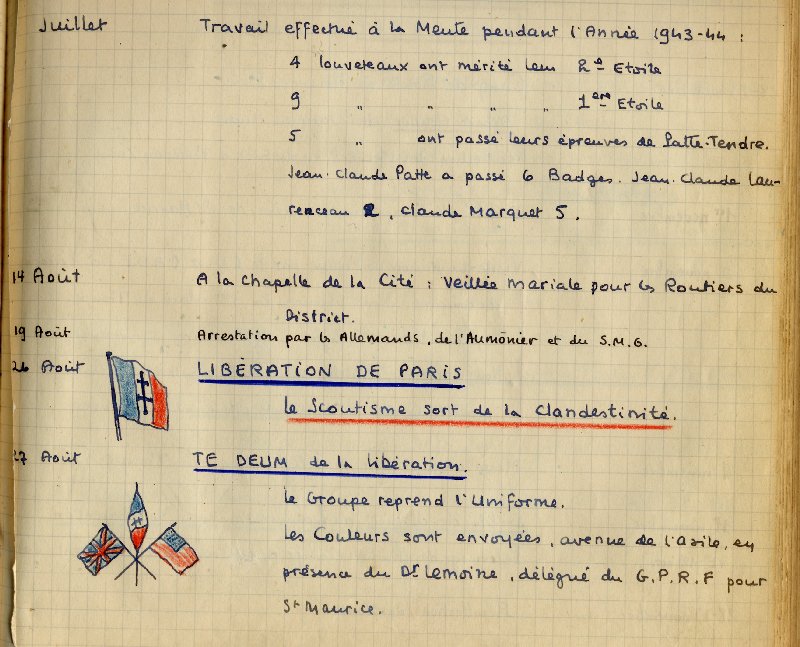 Juillet Travail effectué à la Meute pendant l'Année 1943-44 :
4 louveteaux ont mérité leur 2e Etoile
9 " " " " 1ère Etoile
5 " ont passé leurs épreuves de Patte-Tendre.
Jean-Claude Patte a passé 6 Badges. Jean-Claude Lau-
renceau 2, Claude Marquet 5.
14 Août A la Chapelle de la Cité : Veillée Mariale pour les Routiers du
District.
19 Août Arrestation par les Allemands, de l'Aumônier et du S.M.G.
26 Août LIBÉRATION DE PARIS
Le Scoutisme sort de la Clandestinité.
27 Août TE DEUM de la libération.
Le Groupe reprend l'Uniforme.
Les Couleurs sont envoyées, avenue de l'asile, en
présence du Dr Lemoine, délégué du G.P.R.F pour
St Maurice.